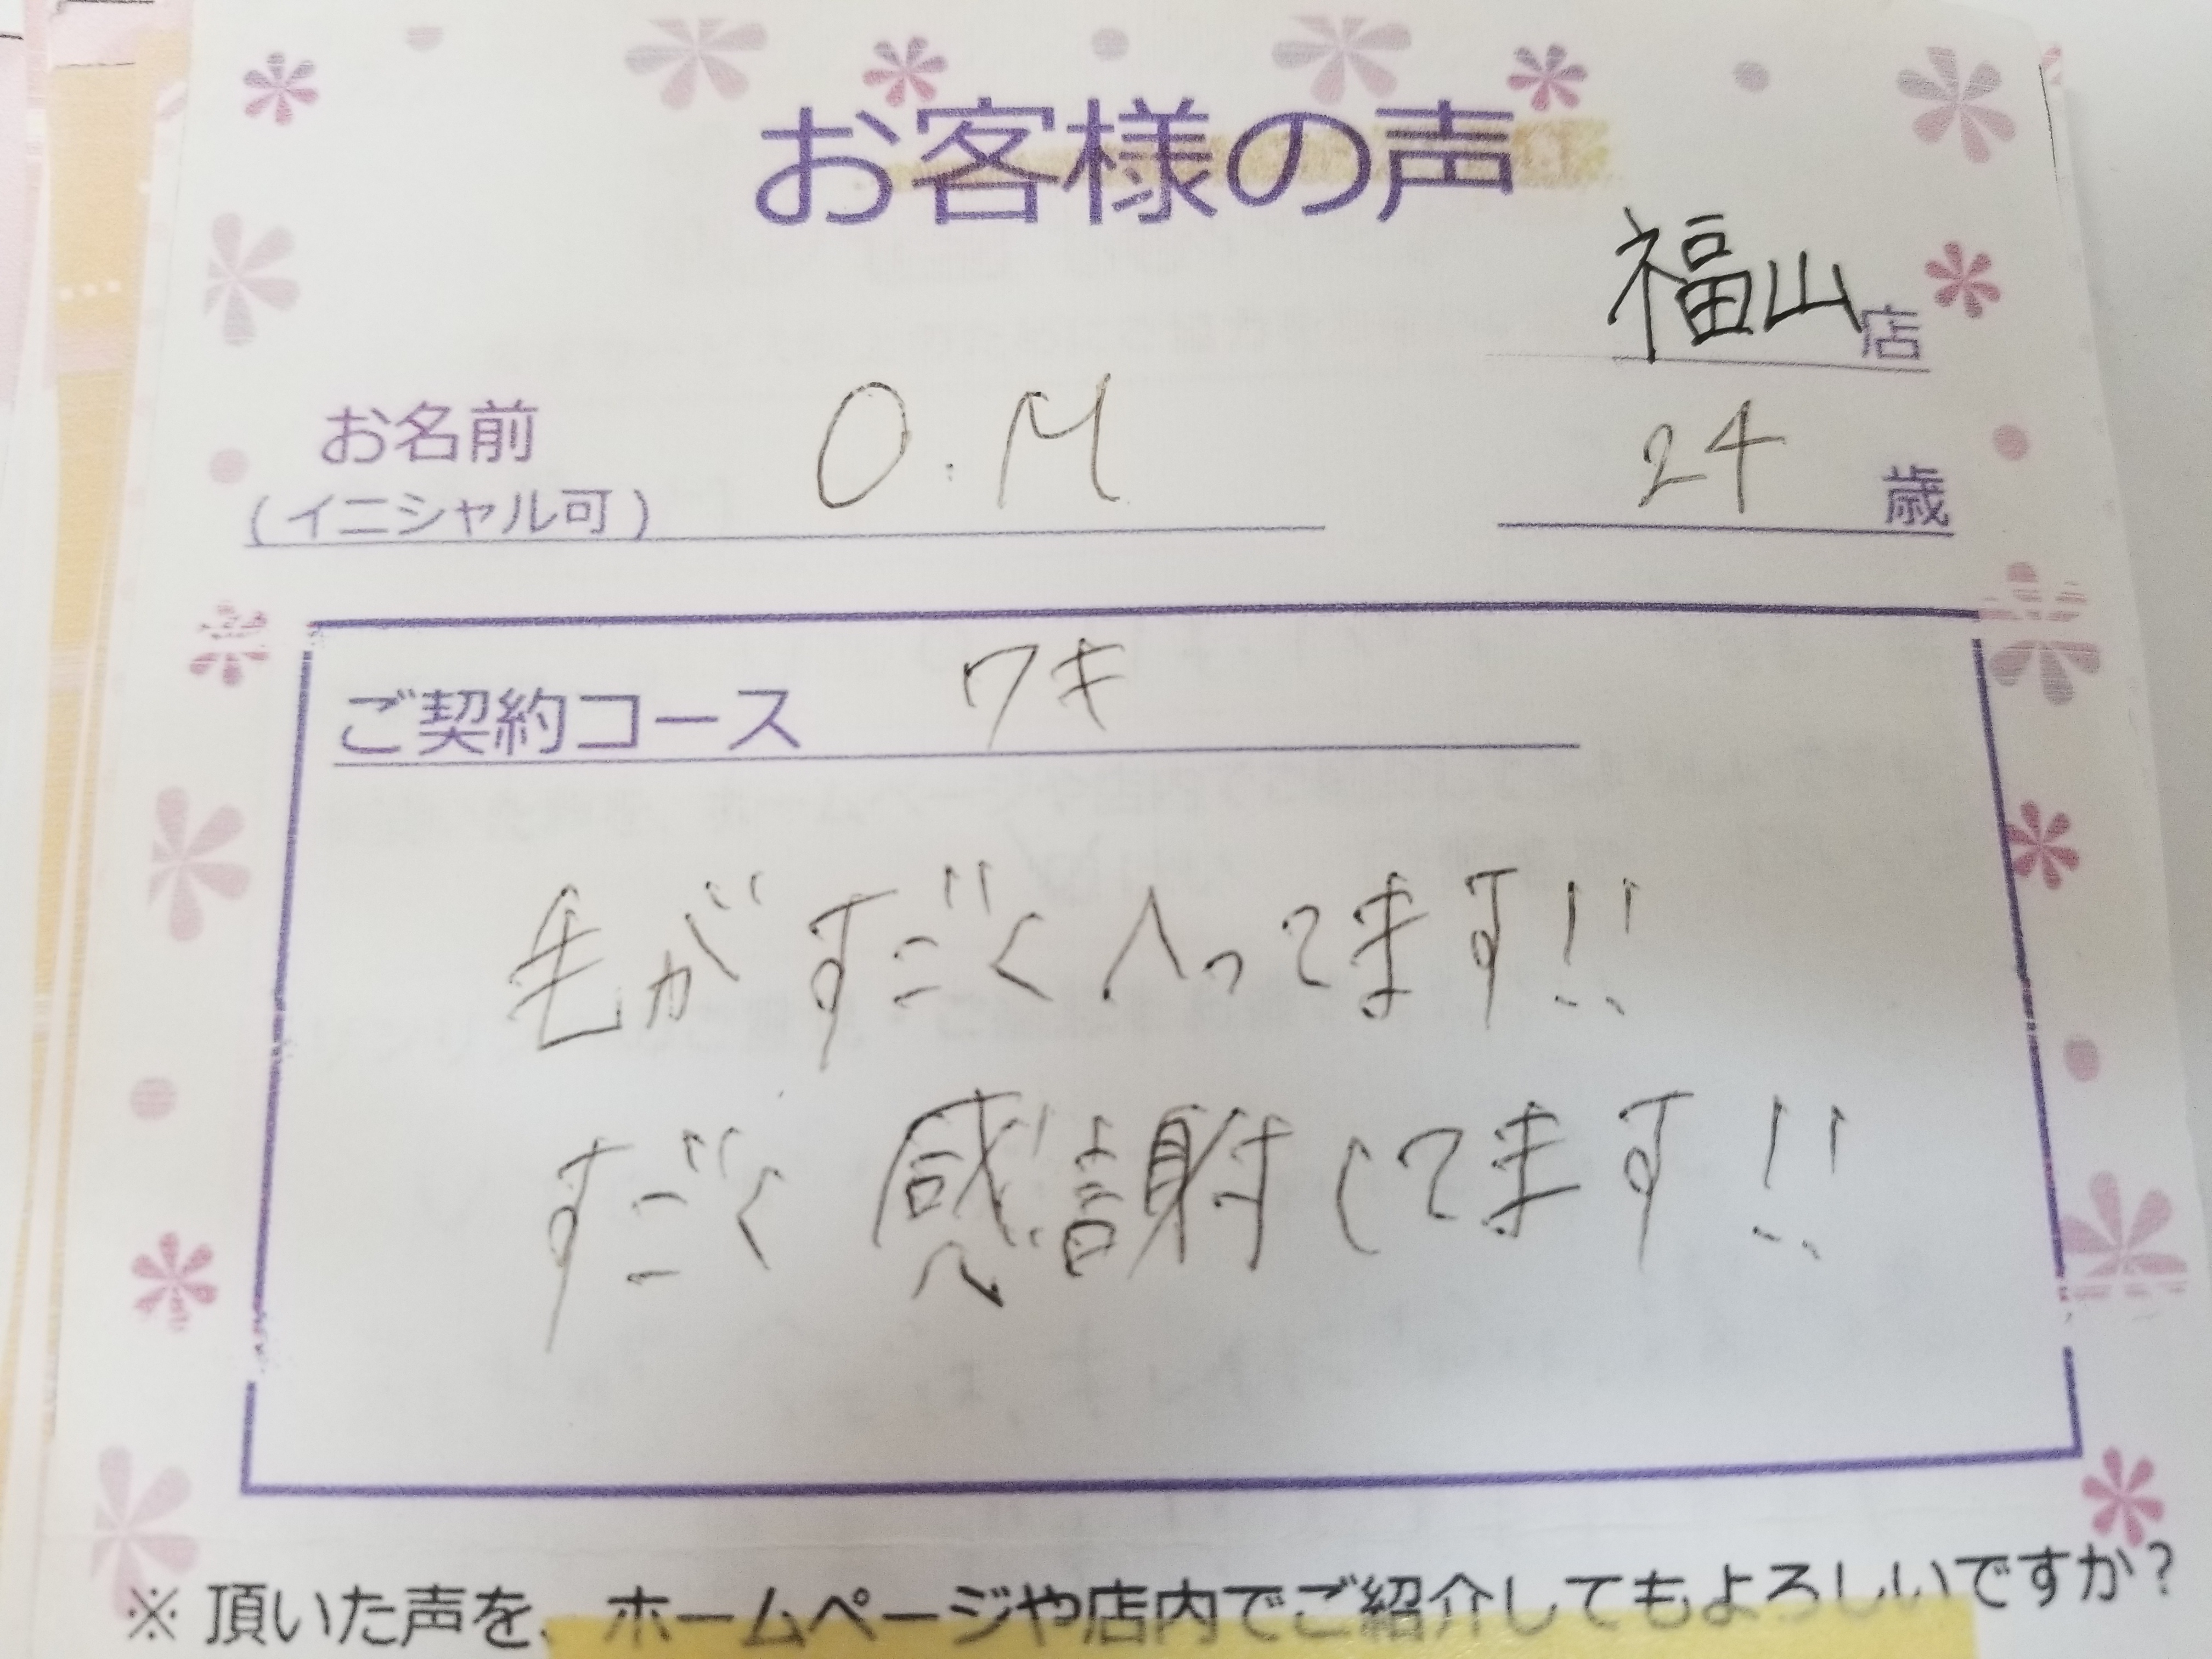 お客様の声
福山店
お名前 O.M 24歳
(イニシャル可)
ご契約コース ワキ
毛がすごくへってます!!
すごく感謝してます!!
※頂いた声を、ホームページや店内でご紹介してもよろしいですか?